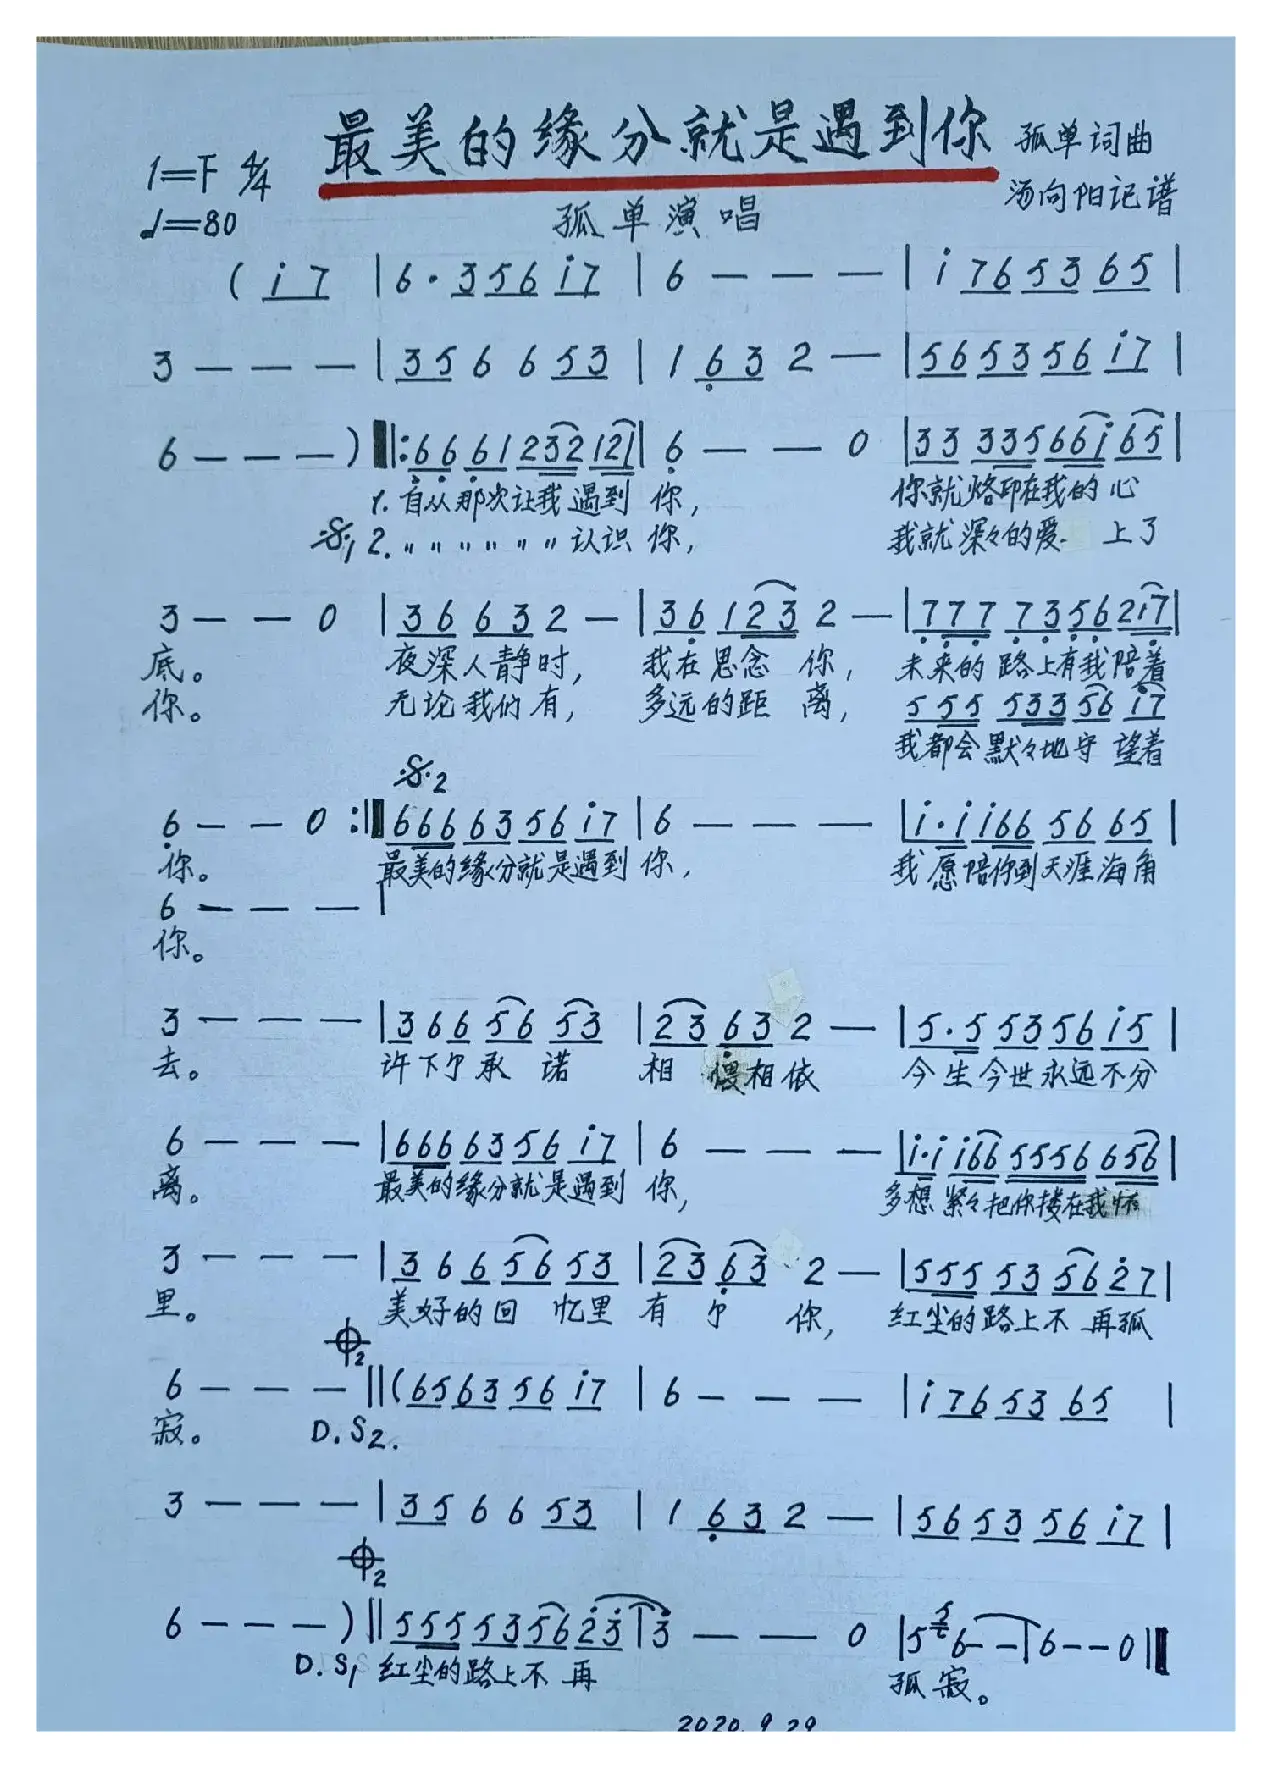 最美的缘分就是遇到你
孤单词曲
1=F 4/4
汤向阳记谱
♩=80
孤单演唱
( i 7 | 6 · 3 5 6 i 7 | 6 — — — | i 7 6 5 3 6 5 |
3 — — — | 3 5 6 6 5 3 | 1 6 3 2 — | 5 6 5 3 5 6 i 7 |
6 — — — ) ‖: 6 6 6 1 2 3 2 1 2 1 | 6 — — 0 | 3 3 3 3 5 6 6 i 6 5 |
1. 自从那次让我遇到 你, 你就烙印在我的心
𝄋1 2. 〃〃〃〃〃〃认识 你, 我就深々的爱 上了
3 — — 0 | 3 6 6 3 2 — | 3 6 1 2 3 2 — | 7 7 7 7 3 5 6 2 i 7 |
底。 夜深人静时, 我在思念 你, 未来的路上有我陪着
你。 无论我们有, 多远的距 离, 5 5 5 5 3 3 5 6 i 7
我都会默々地守 望着
𝄋2
6 — — 0 :‖ 6 6 6 6 3 5 6 i 7 | 6 — — — | i · i i 6 6 5 6 6 5 |
你。 最美的缘分就是遇到 你, 我愿陪你到天涯海角
6 — — — |
你。
3 — — — | 3 6 6 5 6 5 3 | 2 3 6 3 2 — | 5 · 5 5 3 5 6 i 5 |
去。 许下 承 诺 相 偎相依 今生今世永远不分
6 — — — | 6 6 6 6 3 5 6 i 7 | 6 — — — | i · i i 6 6 5 5 5 6 6 5 6 |
离。 最美的缘分就是遇到 你, 多想紧々把你搂在我怀
3 — — — | 3 6 6 5 6 5 3 | 2 3 6 3 2 — | 5 5 5 5 3 5 6 2 7 |
里。 美好的回 忆里 有 你, 红尘的路上不 再孤
𝄌2
6 — — — ‖ ( 6 5 6 3 5 6 i 7 | 6 — — — | i 7 6 5 3 6 5 |
寂。 D.S2.
3 — — — | 3 5 6 6 5 3 | 1 6 3 2 — | 5 6 5 3 5 6 i 7 |
𝄌2
6 — — — ) ‖ 5 5 5 5 3 5 6 2 3 | 3 — — 0 | 5 5 6 — — | 6 — — 0 ‖
D.S1 红尘的路上不 再 孤 寂。
2020.9.29